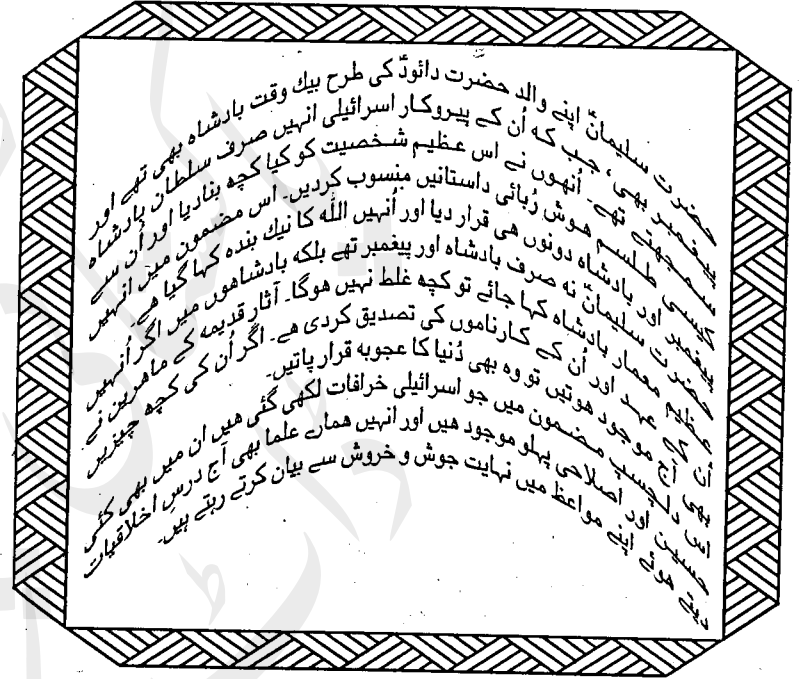 حضرت سلیمانؑ اپنے والد حضرت دائودؑ کی طرح بیک وقت بادشاہ بھی تھے اور
پیغمبر بھی، جب کہ اُن کے پیروکار اسرائیلی انہیں صرف سلطان بادشاہ
سمجھتے تھے۔ اُنھوں نے اس عظیم شخصیت کو کیا کچھ بنادیا اور اُن سے
کیسی طلسم ھوش رُبائی داستانیں منسوب کردیں۔ اس مضمون میں انہیں
پیغمبر اور بادشاہ دونوں ھی قرار دیا اور اُنہیں اللہ کا نیک بندہ کہا گیا ھے۔
حضرت سلیمانؑ نہ صرف بادشاہ اور پیغمبر تھے بلکہ بادشاھوں میں اگر اُنہیں
عظیم معمار بادشاہ کہا جائے تو کچھ غلط نہیں ھوگا۔ آثار قدیمہ کے ماھرین نے
اُن کے عہد اور اُن کے کارناموں کی تصدیق کردی ھے۔ اگر اُن کی کچھ چیزیں
بھی آج موجود ھوتیں تو وہ بھی دُنیا کا عجوبہ قرار پاتیں۔
اس دلچسپ مضمون میں جو اسرائیلی خرافات لکھی گئی ھیں ان میں بھی کئی
حسین اور اصلاحی پہلو موجود ھیں اور انہیں ھمارے علما بھی آج درسِ اخلاقیات
دیتے ھوئے اپنے مواعظ میں نہایت جوش و خروش سے بیان کرتے رہتے ہیں۔